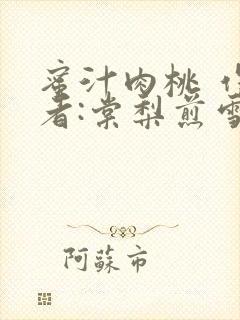 蜜汁肉桃 作
者:棠梨煎雪
阿蘇市